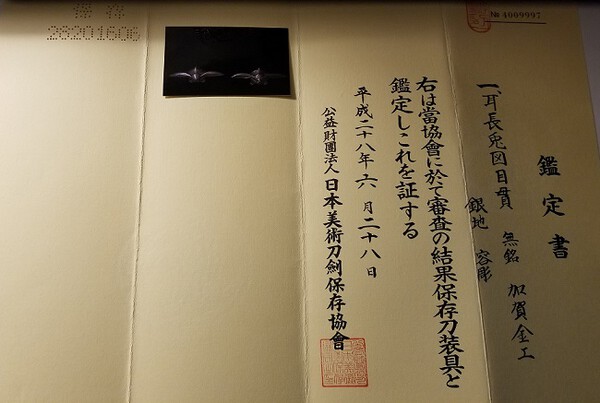 № 4009997
鑑定書
一、耳長兎図目貫 無銘 加賀金工
銀地 容彫
右は當協會に於て審査の結果保存刀装具と
鑑定しこれを証する
平成二十八年六月二十八日
公益財團法人 日本美術刀劍保存協會
28201606